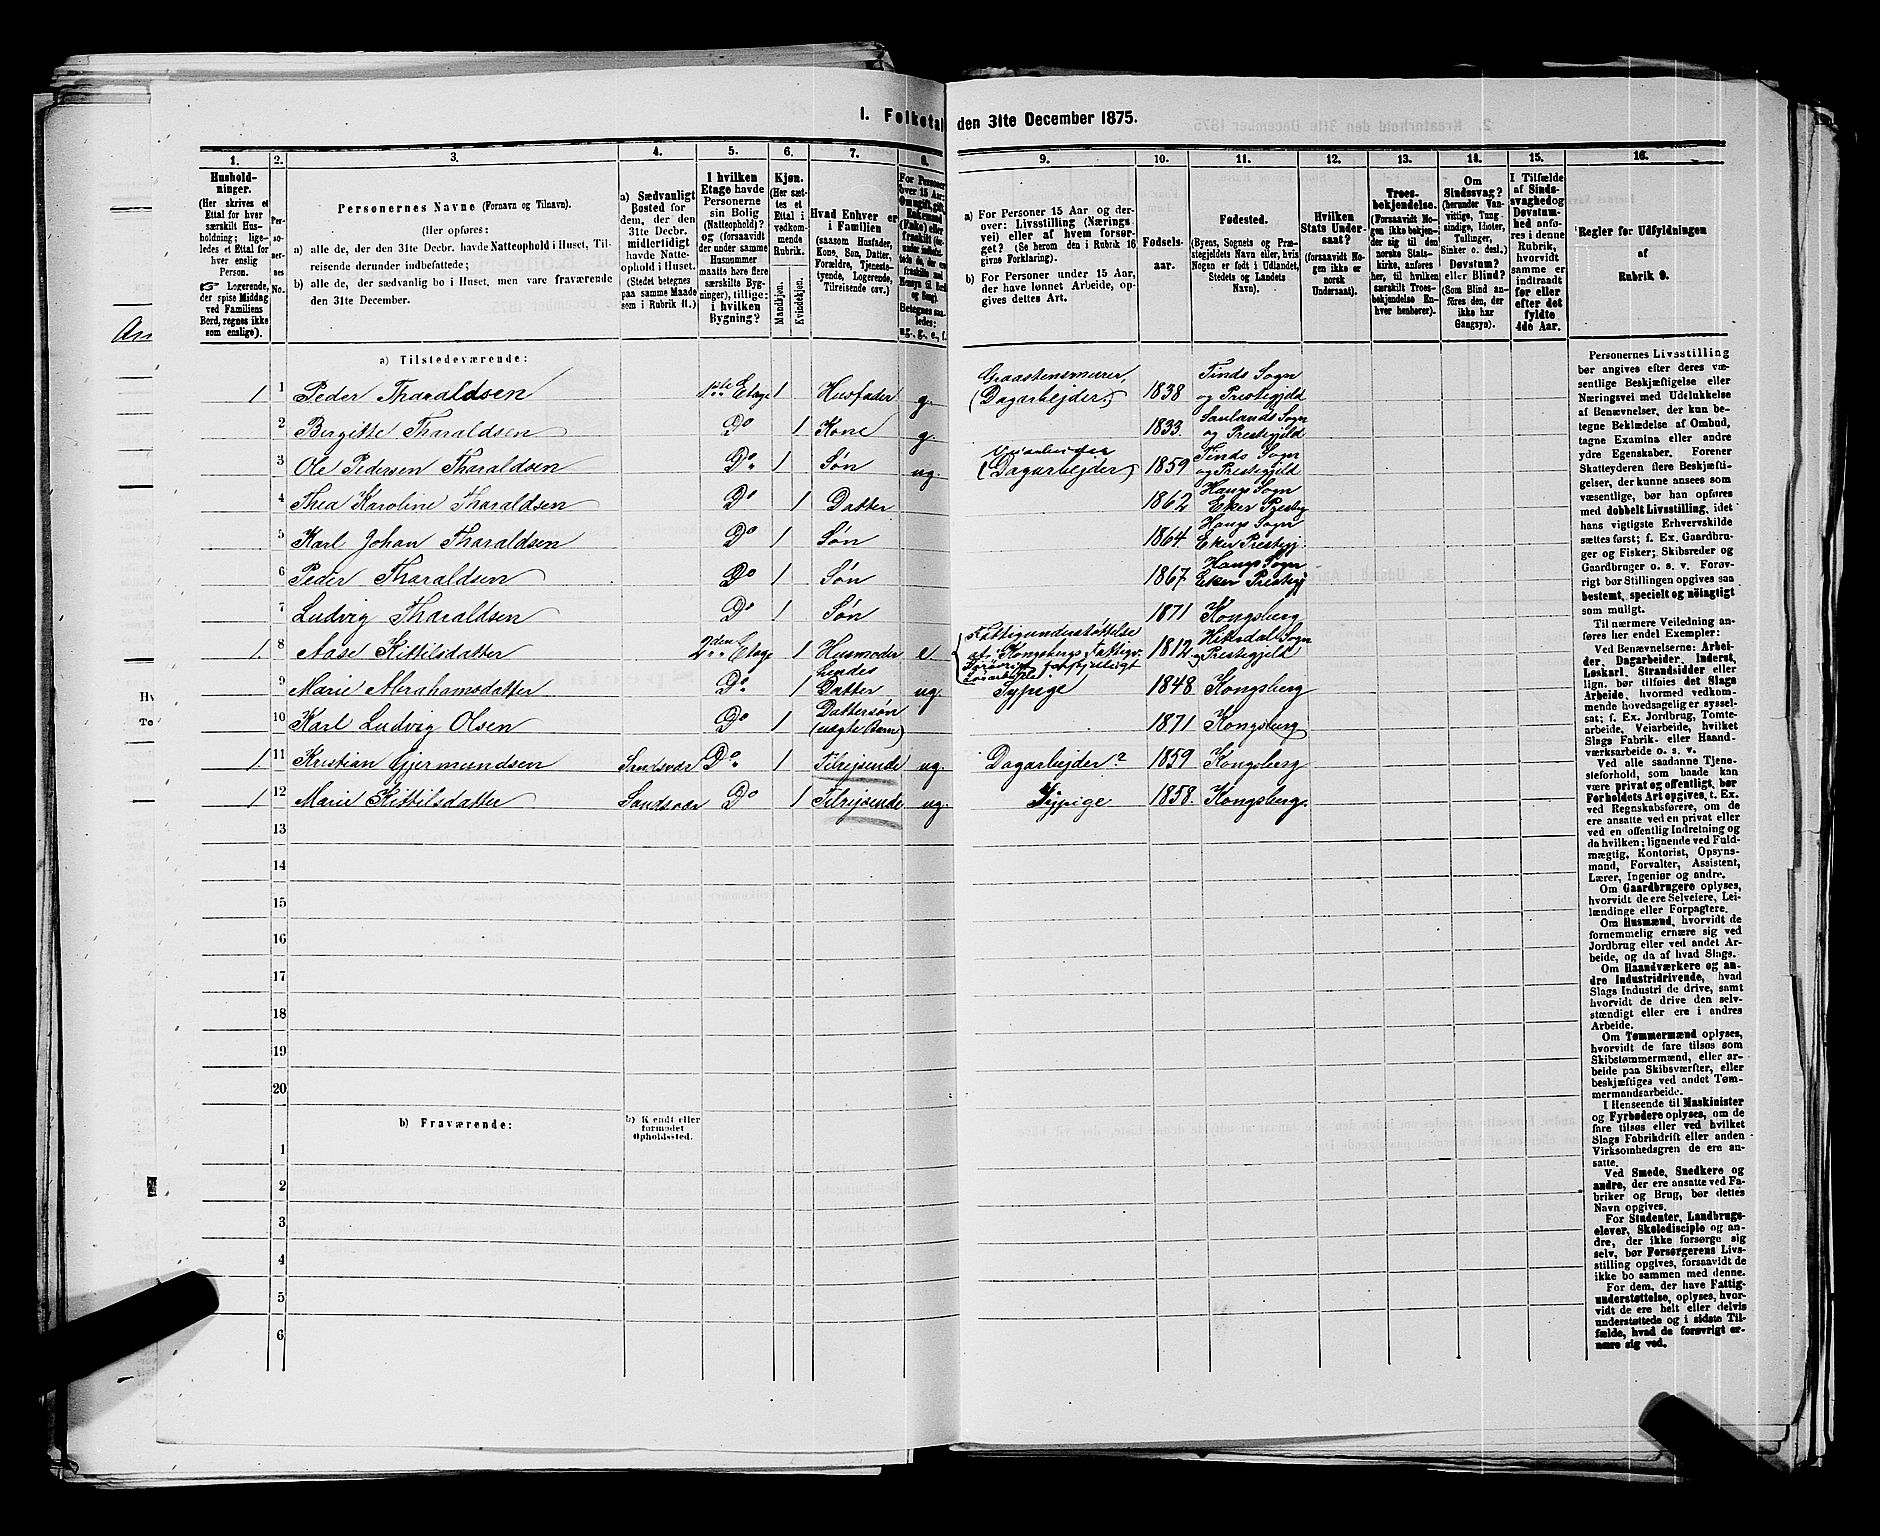 1. Folketal den 31te December 1875.
1. 2. 3. 4. 5. 6. 7. 8. 9. 10. 11. 12. 13. 14. 15. 16.
Hushold-
ninger.
(Her skrives et
Ettal for hver
særskilt Hus-
holdning; lige-
ledes et Ettal for
hver enslig
Person.
Logerende,
der spise Middag
ved Familiens
Bord, regnes ikke
som enslige).
Per-
so-
ner-
nes
No.
Personernes Navne (Fornavn og Tilnavn).
(Her opføres:
a) alle de, der den 31te Decbr. havde Natteophold i Huset, Til-
reisende derunder indbefattede;
b) alle de, der sædvanlig bo i Huset, men vare fraværende
den 31te December.
a) Sædvanligt
Bosted for
dem, der den
31te Decbr.
midlertidigt
havde Natte-
ophold i Huset.
(Stedet betegnes
paa samme Maade
som i Rubrik 11.)
I hvilken
Etage havde
Personerne
sin Bolig
(Natteophold)?
og (forsaavidt
der under samme
Husnummer
maatte høre flere
særskilte Byg-
ninger), tillige:
i hvilken
Bygning?
Kjøn.
(Her sæt-
tes et
Ettal i
vedkom-
mende
Rubrik.
Mandkjøn.
Kvindekjøn.
Hvad Enhver er
i Familien
(saasom Husfader,
Kone, Søn, Datter,
Forældre, Tjeneste-
tyende, Logerende,
Tilreisende osv.)
For Personer
over 15 Aar:
Betegnes saa-
ledes:
ug., g., e., f.
a) For Personer 15 Aar og der-
over: Livsstilling (Nærings-
vei) eller af hvem forsør-
get? (Se herom den i Rubrik 16
givne Forklaring).
b) For Personer under 15 Aar,
der have lønnet Arbeide, op-
gives dettes Art.
Fødsels-
aar.
Fødested.
(Byens, Sognets og Præ-
stegjeldets Navn eller, hvis
Nogen er født i Udlandet,
Stedets og Landets
Navn).
Hvilken
Stats Under-
saat?
(forsaavidt No-
gen ikke er
norsk
Undersaat).
Troes-
bekjendelse.
(Forsaavidt No-
gen ikke bekjen-
der sig til den
norske Stats-
kirke, anføres
her særskilt Troes-
bekjendelse En-
hver henhører).
Om
Sindssvag?
(herunder Van-
vittige, Tung-
sindige, Idioter,
Tullinger,
Sinker o. desl.)
Døvstum?
eller Blind?
(Som Blind an-
føres den, der
ikke har
Gangsyn).
I Tilfælde
af Sinds-
svaghed og
Døvstum-
hed anfø-
res i denne
Rubrik,
hvorvidt
samme er
indtraadt
før eller
efter det
fyldte
4de Aar.
Regler for Udfyldningen
af
Rubrik 9.
a) Tilstedeværende:
1 1 Peder Tharaldsen 1ste Etage 1 Husfader g. Graastensmurer, (Dagarbejder) 1838 Tinds Sogn og Prestegjeld
2 Birgitte Tharaldsen Do 1 Kone g. 1833. Saulands Sogn og Prestegjeld
3 Ole Pedersen Tharaldsen Do 1 Søn ug. (Dagarbejder) 1859 Tinds Sogn og Prestegjeld
4 Thea Karoline Tharaldsen Do 1 Datter 1862 Haugs Sogn Eker Presteg
5 Karl Johan Tharaldsen Do 1 Søn 1864. Haugs Sogn Eker Prestegj.
6 Peder Tharaldsen Do 1 Søn 1867 Haugs Sogn Eker Prestegj
7 Ludvig Tharaldsen Do 1 Søn 1871 Kongsberg
1. 8 Aase Kittilsdatter 2den Etage 1 Husmoder e Fattigunderstøttelse af Kongsbergs Fattigv. 1812 Hiterdal Sogn og Prestegjeld
9 Marie Abrahamsdatter Do 1 hendes Datter ug. Sypige 1848 Kongsberg
10 Karl Ludvig Olsen Do 1 Dattersøn (uægte Barn) 1871 Kongsberg
1. 11 Kristian Gjermundsen Sandsvær Do 1 Tilrejsende ug. Dagarbejder? 1859 Kongsberg
1 12 Marie Kittilsdatter Sandsvær Do 1 Tilrejsende ug. Sypige 1858. Kongsberg
13
14
15
16
17
18
19
20
b) Fraværende:
b) Kjendt eller
formodet
Opholdssted.
1
2
3
4
5
6
Personernes Livsstilling
bør angives efter deres væ-
sentlige Beskjæftigelse eller
Næringsvei med Udelukkelse
af Benævnelser, der kun be-
tegne Beklædelse af Ombud,
tagne Examina eller andre
ydre Egenskaber. Forener
Skatteyderen flere Beskjæfti-
gelser, der kunne ansees som
væsentlige, bør han opføres
med dobbelt Livsstilling, idet
hans vigtigste Erhvervskilde
sættes først; f. Ex. Gaardbru-
ger og Fisker; Skibsreder og
Gaardbruger o. s. v. Forøv-
rigt bør Stillingen opgives saa
bestemt, specielt og nöiagtigt
som muligt.
Til nærmere Veiledning an-
føres her endel Exempler:
Ved Benævnelserne: Arbei-
der, Dagarbeider, Inderst,
Løskarl, Strandsidder eller
lign. bør tilføies det Slags
Arbeide, hvormed vedkom-
mende hovedsagelig er syssel-
sat; f. Ex. Jordbrug, Tomte-
arbeide, Veiarbeide, hvilket
Slags Fabrik- eller Haand-
værksarbeide o. s. v.
Ved alle saadanne Tjene-
steforhold, som baade kan
være privat og offentligt, bør
Forholdets Art opgives, t. Ex.
ved Regnskabsførere, om de
ere ansatte ved en privat eller
ved en offentlig Indretning og
da hvilken; lignende ved Fuld-
mægtig, Kontorist, Opsyns-
mand, Forvalter, Assistent,
Lærer, Ingeniør og andre.
Om Gaardbrugere oplyses,
hvorvidt de ere Selveiere, Lei-
lændinge eller Forpagtere.
Om Husmænd, hvorvidt de
fornemmelig ernære sig ved
Jordbrug eller ved andet Ar-
beide, og da af hvad Slags.
Om Haandværkere og an-
dre Industridrivende, hvad
Slags Industri de drive, samt
hvorvidt de drive den selv-
stændigt eller ere i andres
Arbeide.
Om Tømmermænd oplyses,
hvorvidt de fare tilsøs som
Skibstømmermænd, eller ar-
beide paa Skibsværfter, eller
beskjæftiges ved andet Tøm-
mermandsarbeide.
I Henseende til Maskinister
og Fyrbødere oplyses, om de
fare tilsøs eller ved hvilket
Slags Fabrikdrift eller anden
Virksomhedsgren de ere an-
satte.
Ved Smede, Snedkere og
andre, der ere ansatte ved Fa-
briker og Brug, bør dettes
Navn opgives.
For Studenter, Landbrugs-
elever, Skoledisciple og an-
dre, der ikke forsørge sig
selv, bør Forsørgerens Livs-
stilling opgives, forsaavidt de
ikke bo sammen med denne.
For dem, der have Fattig-
understøttelse, oplyses, hvor-
vidt de ere helt eller delvis
understøttede og i sidste Til-
fælde, hvad de forøvrigt er-
nære sig ved.